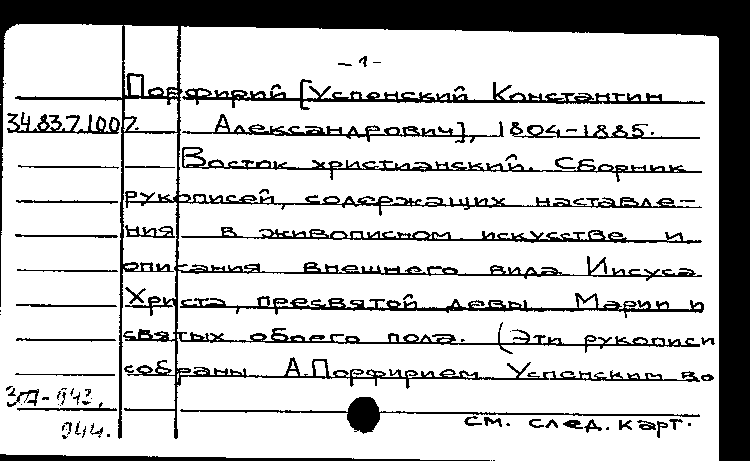 - 1 -
Порфирий [Успенский Константин
34.83.7.1007. Александрович], 1804-1885.
Восток христианский. Сборник
рукописей, содержащих наставле-
ния в живописном искусстве и
описания внешнего вида Иисуса
Христа, пресвятой девы Марии и
святых обоего пола. (Эти рукописи
собраны А.Порфирием Успенским во
943,
944.
см. след. карт.